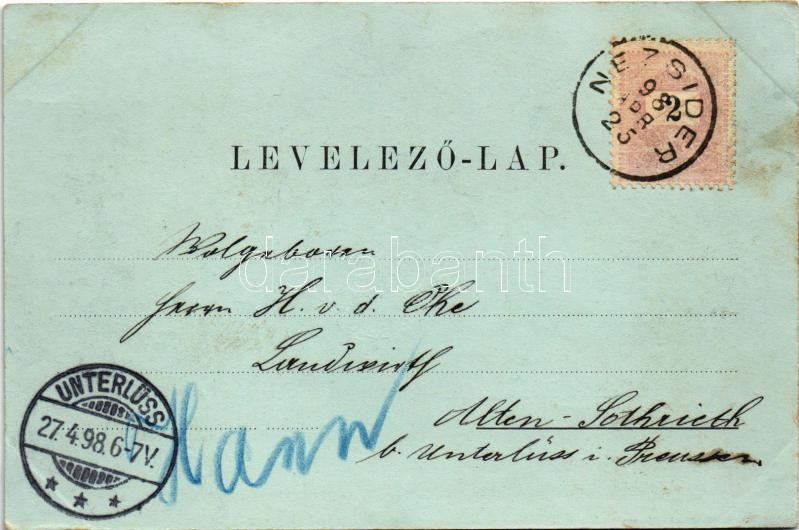 NEZSIDER
98
APR
25
2
LEVELEZŐ-LAP.
Wolgeboren
Herrn H. v. d. Ohe
Landwirth
Alten-Sothrieth
b. Unterlüss i. Preussen
Hann
UNTERLÜSS
27.4.98.6-7V.
* * *
darabanth